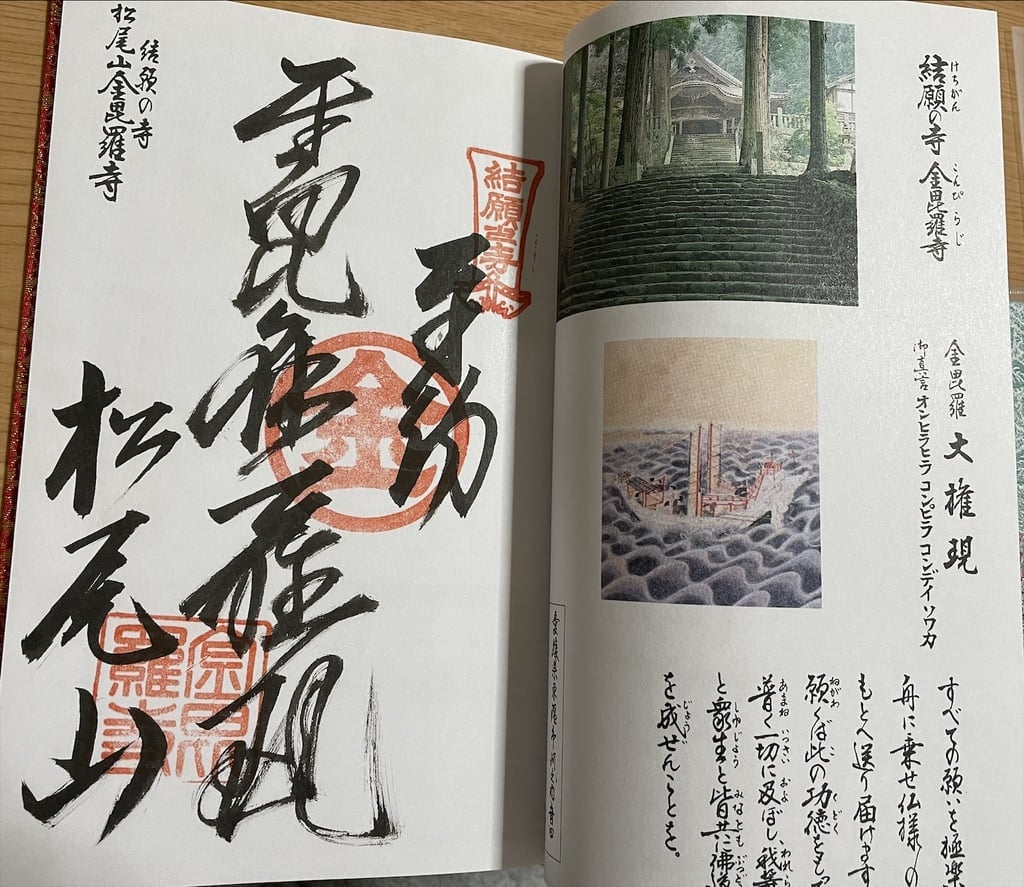 結願の寺 金毘羅寺
けちがん こんぴらじ
金毘羅 大権現
御真言 オンヒラヒラ コンピラ コンデイ ソワカ
すべての願いを極楽
舟に乗せ仏様の
もとへ送り届けます
願くば此の功徳をも
普く一切に及ぼし、我等
と衆生と皆共に佛道
を成せんことを。
愛媛県東温市河之内音田
奉納
金毘羅権現
松尾山
金
金毘羅寺
結願の寺
松尾山金毘羅寺